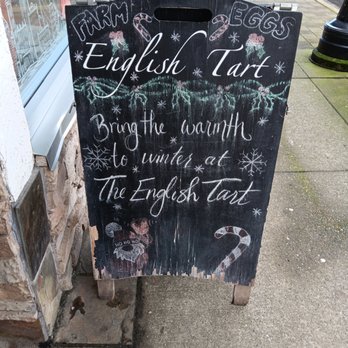 FARM EGGS
English Tart
Bring the warmth
to winter at
The English Tart